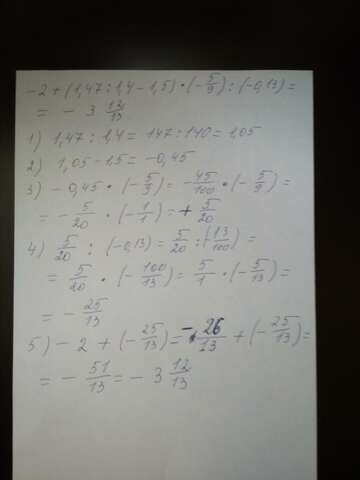 -2+(1,47:1,4-1,5)·(-5/9):(-0,13)=
= -3 12/13
1) 1,47:1,4=147:140=1,05
2) 1,05-1,5=-0,45
3) -0,45·(-5/9)=-45/100·(-5/9)=
= -5/20·(-1/1)=+5/20
4) 5/20:(-0,13)=5/20:(13/100)=
= 5/20·(-100/13)=5/1·(-5/13)=
= -25/13
5) -2+(-25/13)=-26/13+(-25/13)=
= -51/13=-3 12/13